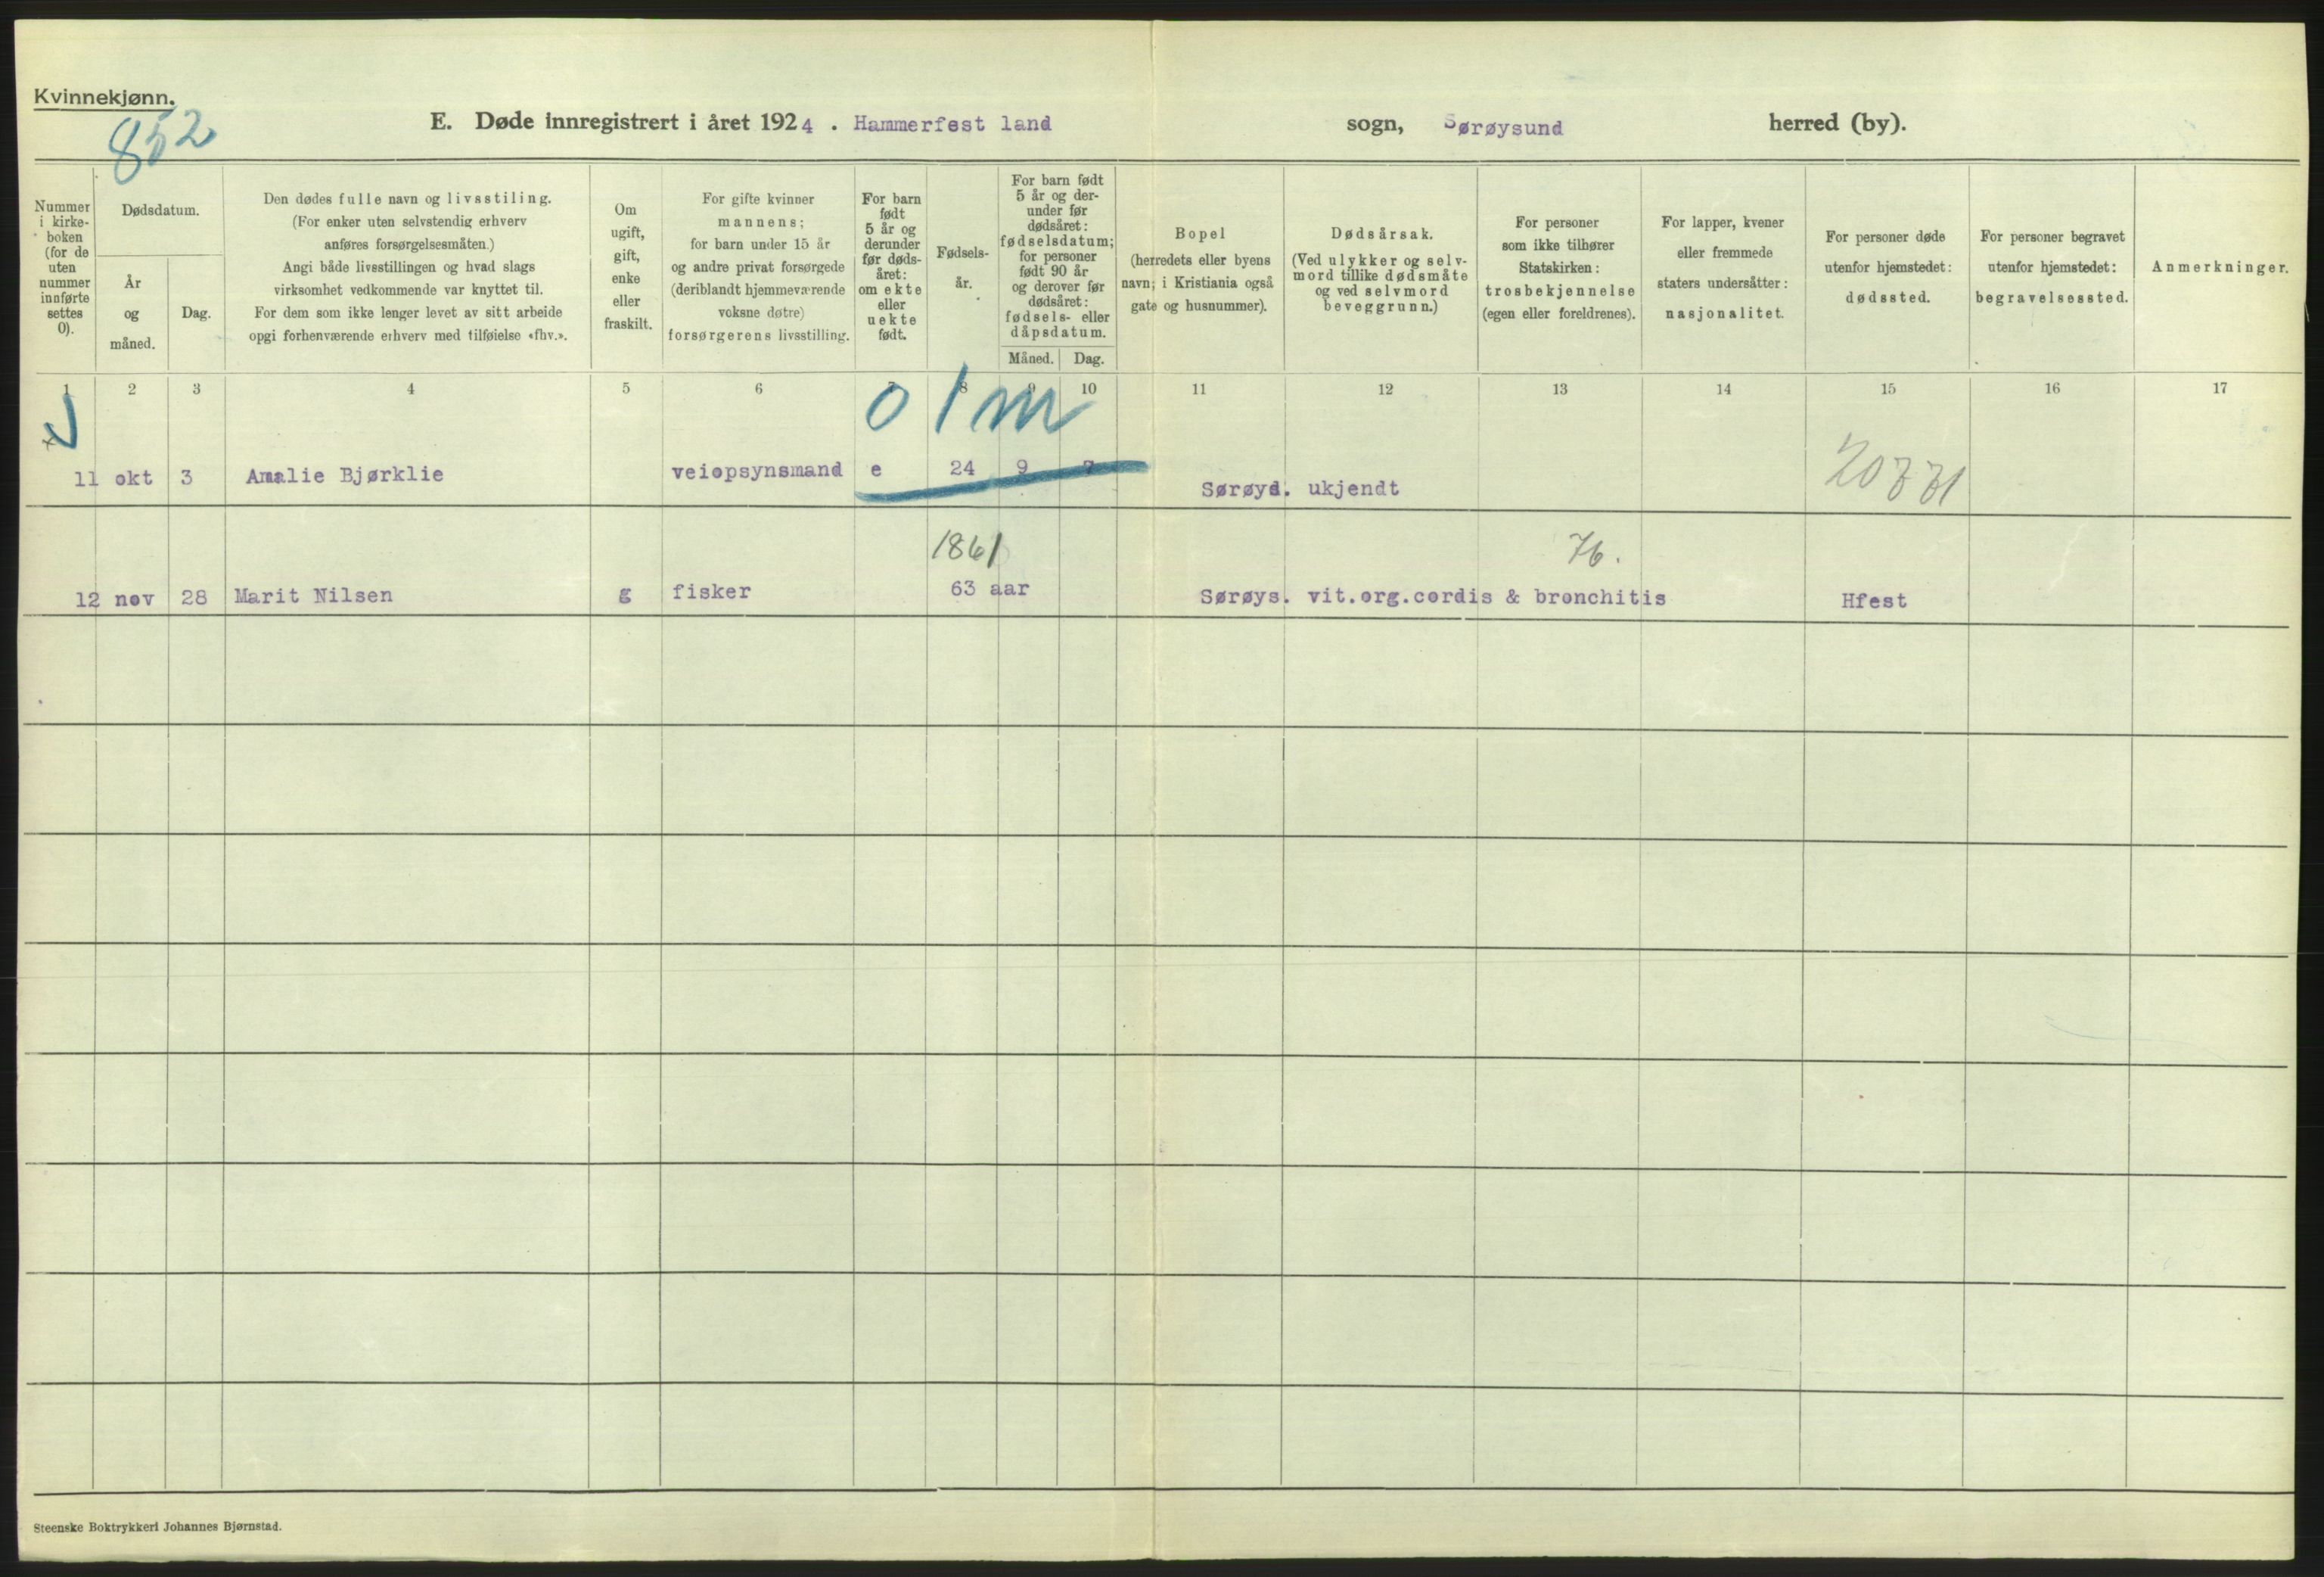 Kvinnekjønn.
852
E. Døde innregistrert i året 1924 . Hammerfest land sogn, Sørøysund herred (by).
Nummer
i kirke-
boken
(for de
uten
nummer
innførte
settes
0).
Dødsdatum.
År
og
måned.
Dag.
Den dødes fulle navn og livsstiling.
(For enker uten selvstendig erhverv
anføres forsørgelsesmåten.)
Angi både livsstillingen og hvad slags
virksomhet vedkommende var knyttet til.
For dem som ikke lenger levet av sitt arbeide
opgi forhenværende erhverv med tilføielse «fhv.».
Om
ugift,
gift,
enke
eller
fraskilt.
For gifte kvinner
mannens;
for barn under 15 år
og andre privat forsørgede
(deriblandt hjemmeværende
voksne døtre)
forsørgerens livsstilling.
For barn
født
5 år og
derunder
før døds-
året:
om ekte
eller
uekte
født.
Fødsels-
år.
For barn født
5 år og der-
under før
dødsåret:
fødselsdatum;
for personer
født 90 år
og derover før
dødsåret:
fødsels- eller
dåpsdatum.
Måned. Dag.
Bopel
(herredets eller byens
navn; i Kristiania også
gate og husnummer).
Dødsårsak.
(Ved ulykker og selv-
mord tillike dødsmåte
og ved selvmord
beveggrunn.)
For personer
som ikke tilhører
Statskirken:
trosbekjennelse
(egen eller foreldrenes).
For lapper, kvener
eller fremmede
staters undersåtter:
nasjonalitet.
For personer døde
utenfor hjemstedet:
dødssted.
For personer begravet
utenfor hjemstedet:
begravelsessted.
Anmerkninger.
1 2 3 4 5 6 7 8 9 10 11 12 13 14 15 16 17
0 1 m
11 okt 3 Amalie Bjørklie veiopsynsmand e 24 9 7 Sørøys. ukjendt
1861 76.
12 nov 28 Marit Nilsen g fisker 63 aar Sørøys. vit.org.cordis & bronchitis Hfest
Steenske Boktrykkeri Johannes Bjørnstad.